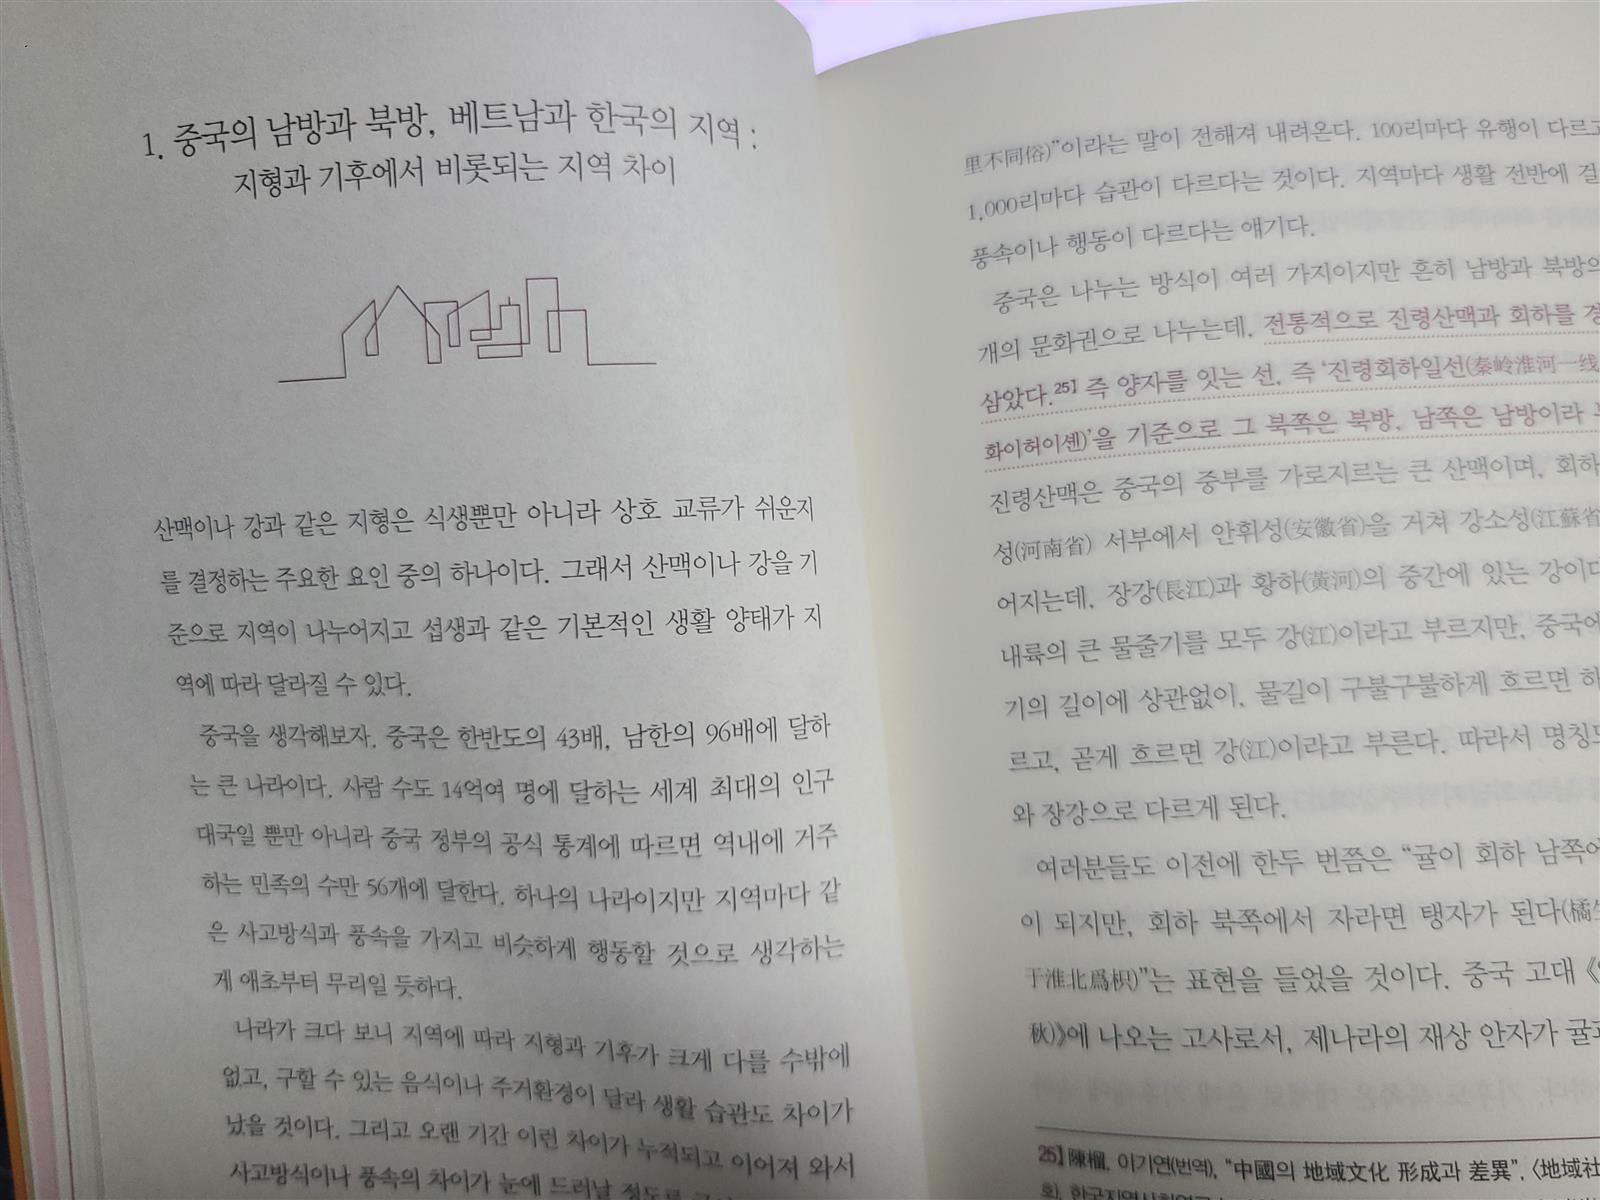 1. 중국의 남방과 북방, 베트남과 한국의 지역 :
지형과 기후에서 비롯되는 지역 차이
산맥이나 강과 같은 지형은 식생뿐만 아니라 상호 교류가 쉬운지
를 결정하는 주요한 요인 중의 하나이다. 그래서 산맥이나 강을 기
준으로 지역이 나누어지고 섭생과 같은 기본적인 생활 양태가 지
역에 따라 달라질 수 있다.
중국을 생각해보자. 중국은 한반도의 43배, 남한의 96배에 달하
는 큰 나라이다. 사람 수도 14억여 명에 달하는 세계 최대의 인구
대국일 뿐만 아니라 중국 정부의 공식 통계에 따르면 역내에 거주
하는 민족의 수만 56개에 달한다. 하나의 나라이지만 지역마다 같
은 사고방식과 풍속을 가지고 비슷하게 행동할 것으로 생각하는
게 애초부터 무리일 듯하다.
나라가 크다 보니 지역에 따라 지형과 기후가 크게 다를 수밖에
없고, 구할 수 있는 음식이나 주거환경이 달라 생활 습관도 차이가
났을 것이다. 그리고 오랜 기간 이런 차이가 누적되고 이어져 와서
사고방식이나 풍속의 차이가 눈에 드러날 정도로
里不同俗)”이라는 말이 전해져 내려온다. 100리마다 유행이 다르고
1,000리마다 습관이 다르다는 것이다. 지역마다 생활 전반에 걸
풍속이나 행동이 다르다는 얘기다.
중국은 나누는 방식이 여러 가지이지만 흔히 남방과 북방의
개의 문화권으로 나누는데, 전통적으로 진령산맥과 회하를 경
삼았다.25] 즉 양자를 잇는 선, 즉 ‘진령회하일선(秦岭淮河一线
화이허이셴)’을 기준으로 그 북쪽은 북방, 남쪽은 남방이라
진령산맥은 중국의 중부를 가로지르는 큰 산맥이며, 회하
성(河南省) 서부에서 안휘성(安徽省)을 거쳐 강소성(江蘇省
어지는데, 장강(長江)과 황하(黃河)의 중간에 있는 강이다
내륙의 큰 물줄기를 모두 강(江)이라고 부르지만, 중국에
기의 길이에 상관없이, 물길이 구불구불하게 흐르면 하
르고, 곧게 흐르면 강(江)이라고 부른다. 따라서 명칭도
와 장강으로 다르게 된다.
여러분들도 이전에 한두 번쯤은 “귤이 회하 남쪽에
이 되지만, 회하 북쪽에서 자라면 탱자가 된다(橘生
于淮北爲枳)”는 표현을 들었을 것이다. 중국 고대
秋)》에 나오는 고사로서, 제나라의 재상 안자가 귤과
25] 이기연(번역), “中國의 地域文化 形成과 差異”, 〈地域社
회, 한국지역사회연구